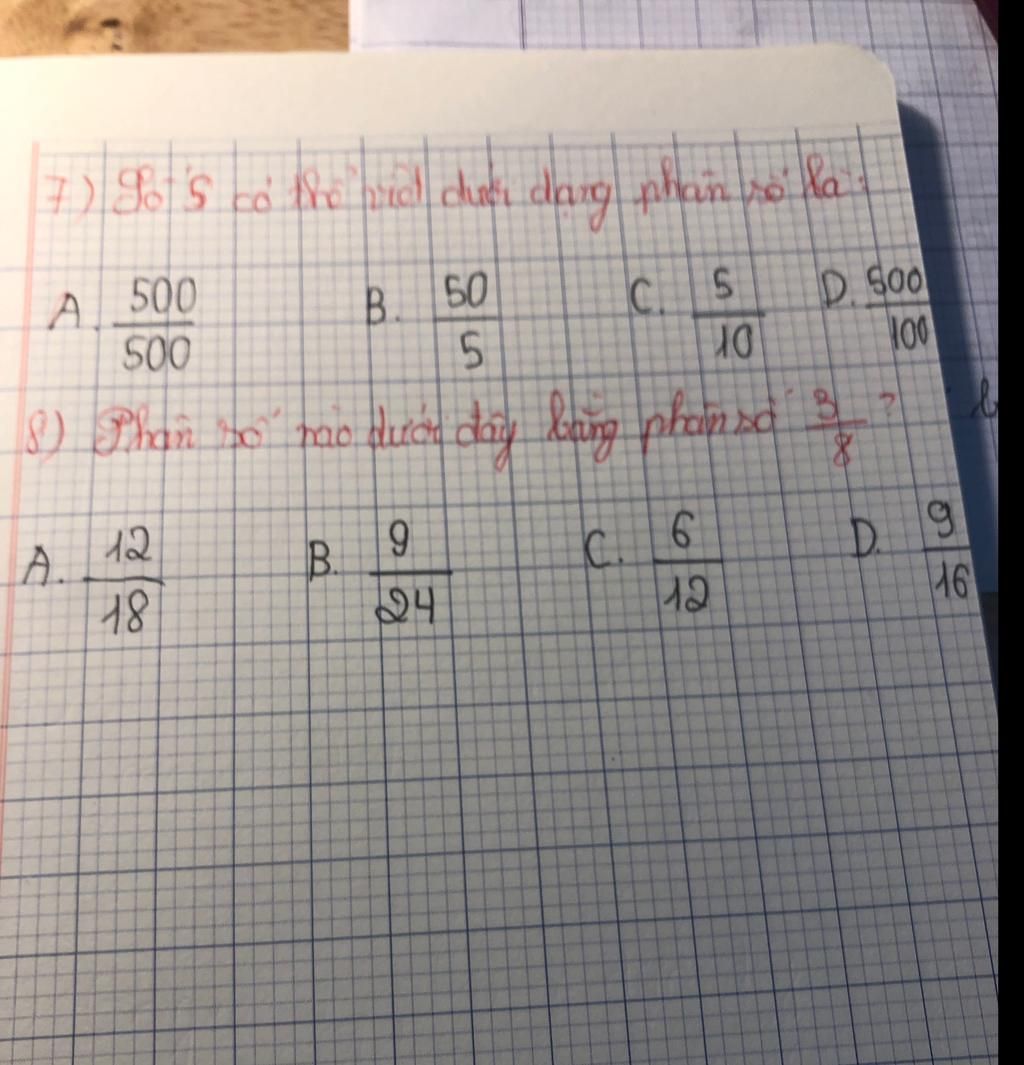 7) Số 5 có thể viết dưới dạng phân số là:
A. 500/500 B. 50/5 C. 5/10 D. 500/100
8) Phân số nào dưới đây bằng phân số 3/8 ?
A. 12/18 B. 9/24 C. 6/12 D. 9/16